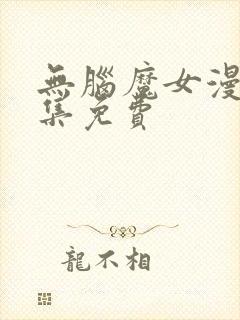 無腦魔女漫
集免費
龍不相